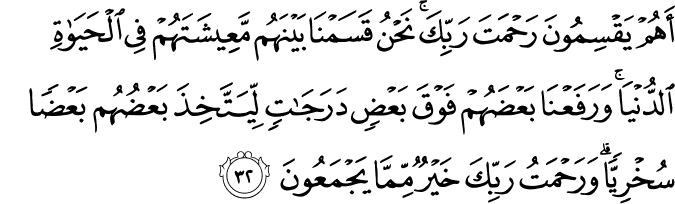 أَهُمْ يَقْسِمُونَ رَحْمَتَ رَبِّكَ ۚ نَحْنُ قَسَمْنَا بَيْنَهُم مَّعِيشَتَهُمْ فِى ٱلْحَيَوٰةِ
ٱلدُّنْيَا ۚ وَرَفَعْنَا بَعْضَهُمْ فَوْقَ بَعْضٍ دَرَجَـٰتٍ لِّيَتَّخِذَ بَعْضُهُم بَعْضًا
سُخْرِيًّا ۗ وَرَحْمَتُ رَبِّكَ خَيْرٌ مِّمَّا يَجْمَعُونَ ٣٢